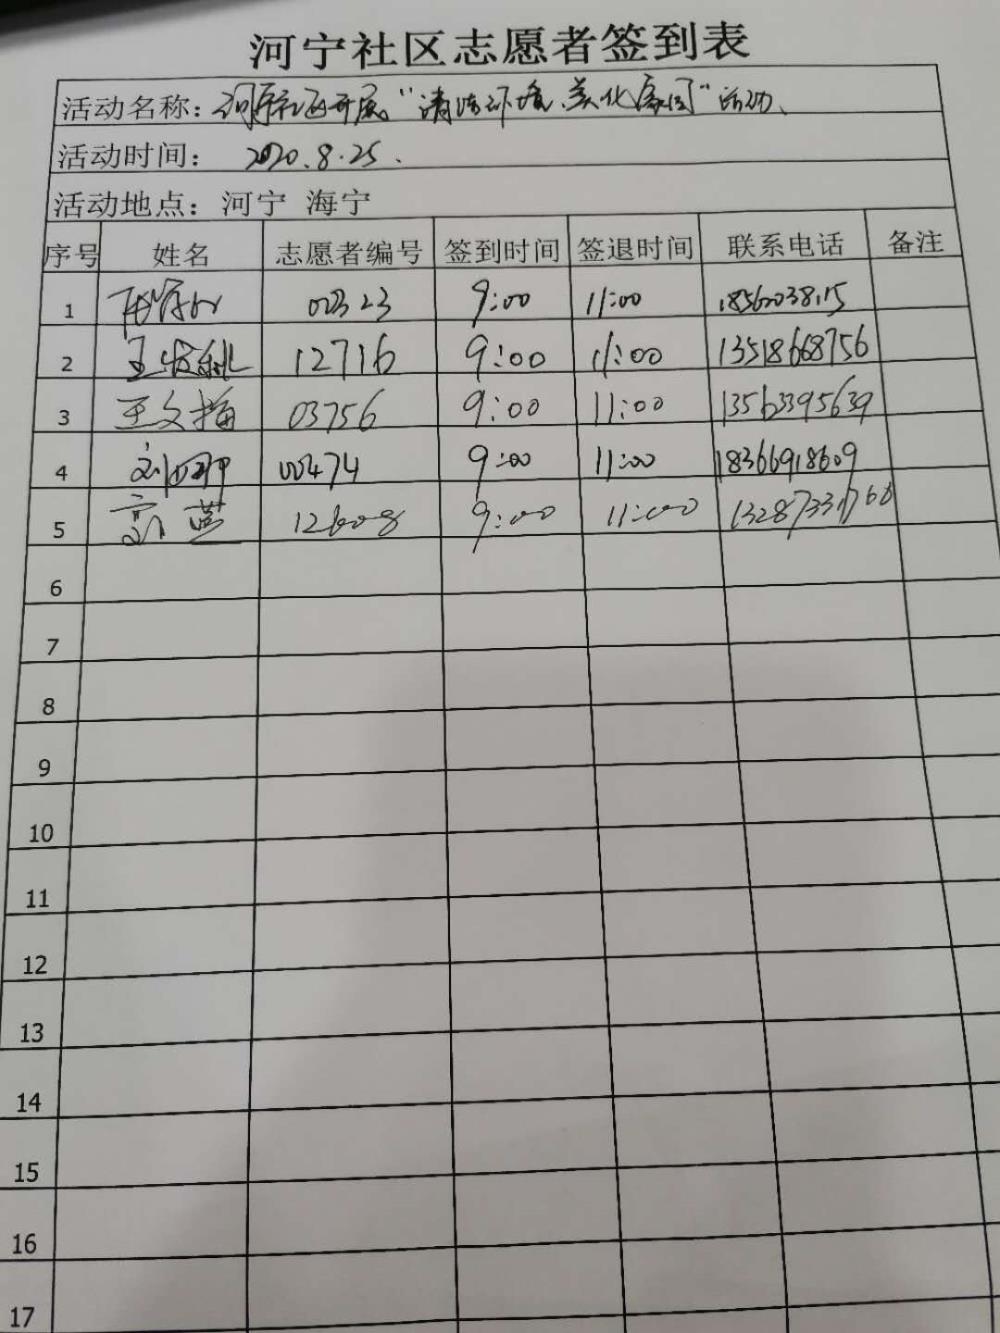 河宁社区志愿者签到表
活动名称：河宁社区开展“清洁环境 美化家园”活动、
活动时间： 2020.8.25.
活动地点：河宁 海宁
序号 姓名 志愿者编号 签到时间 签退时间 联系电话 备注
1 00323 9:00 11:00
2 12716 9:00 11:00 13518668756
3 王文梅 03756 9:00 11:00 13563395639
4 00474 9:00 11:00 18366918609
5 刘蓝 12608 9:00 11:00
6
7
8
9
10
11
12
13
14
15
16
17